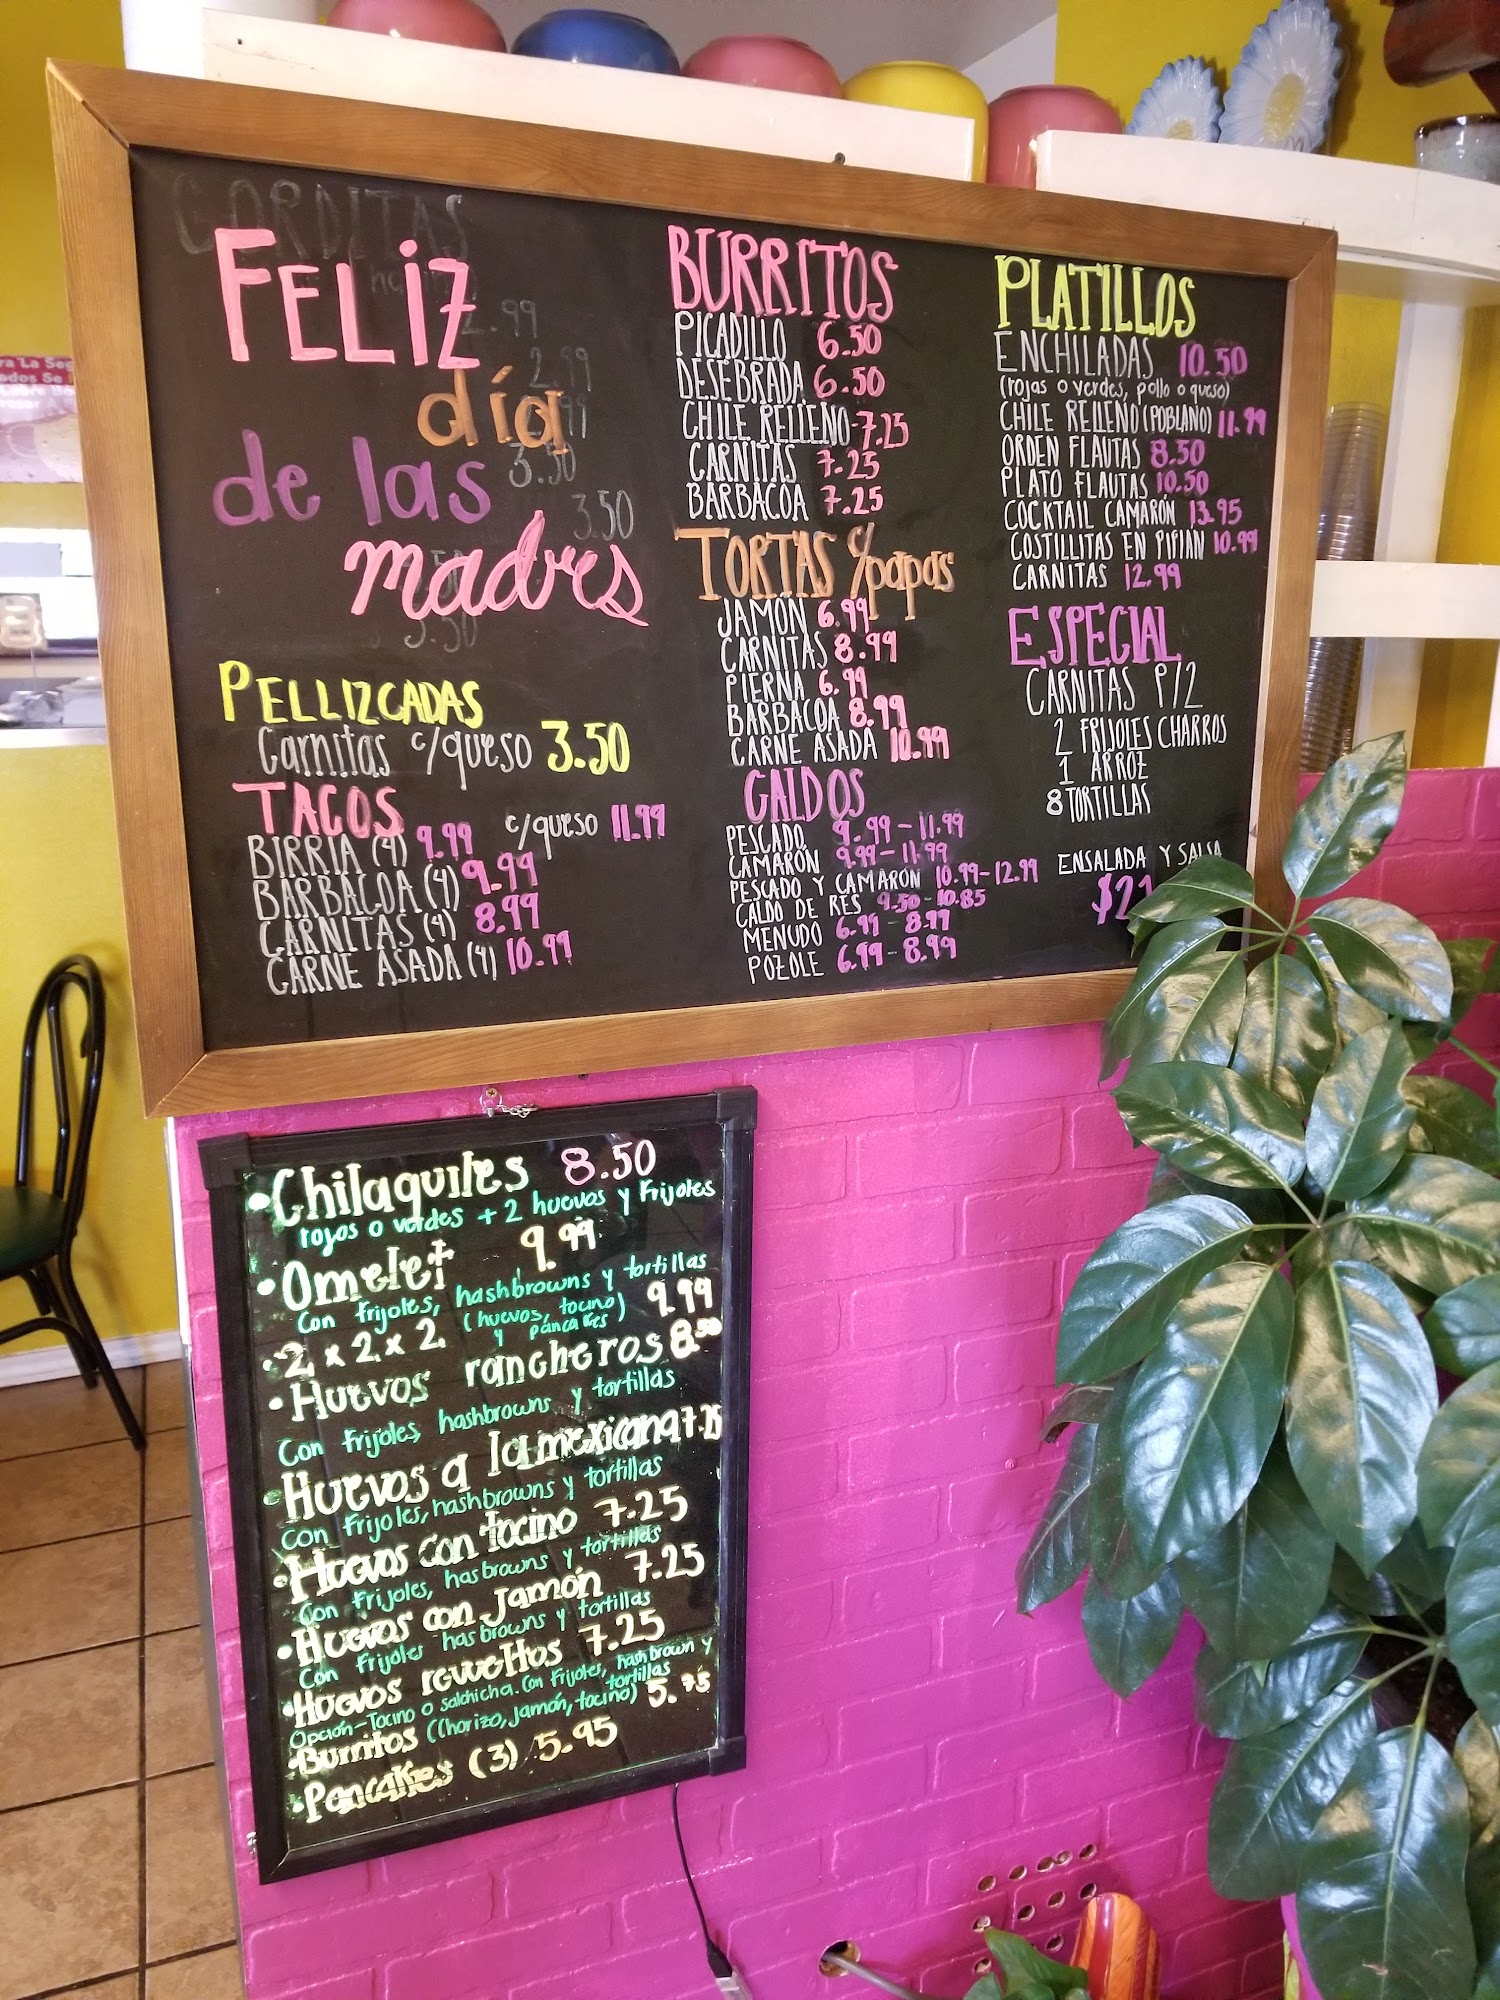 GORDITAS
2.99
2.99
3.50
3.50
3.50
FELiZ
día
de las
madres
PELLIZCADAS
Carnitas c/queso 3.50
TACOS
BIRRIA (4) 9.99 c/queso 11.99
BARBACOA (4) 9.99
CARNITAS (4) 8.99
CARNE ASADA (4) 10.99
BURRITOS
PICADILLO 6.50
DESEBRADA 6.50
CHILE RELLENO-7.25
CARNITAS 7.25
BARBACOA 7.25
TORTAS c/papas
JAMÓN 6.99
CARNITAS 8.99
PIERNA 6.99
BARBACOA 8.99
CARNE ASADA 10.99
CALDOS
PESCADO 9.99-11.99
CAMARÓN 9.99-11.99
PESCADO Y CAMARÓN 10.99-12.99
CALDO DE RES 9.50-10.85
MENUDO 6.99-8.99
POZOLE 6.99-8.99
PLATILLOS
ENCHILADAS 10.50
(rojas o verdes, pollo o queso)
CHILE RELLENO (POBLANO) 11.99
ORDEN FLAUTAS 8.50
PLATO FLAUTAS 10.50
COCKTAIL CAMARÓN 13.95
COSTILLITAS EN PIPIÁN 10.99
CARNITAS 12.99
ESPECIAL
CARNITAS P/2
2 FRIJOLES CHARROS
1 ARROZ
8 TORTILLAS
ENSALADA Y SALSA
• Chilaquiles 8.50
rojos o verdes + 2 huevos y Frijoles
• Omelet 9.99
Con frijoles, hashbrowns y tortillas
• 2 x 2 x 2 (huevos, tocino y pancakes) 9.99
• Huevos rancheros 8.50
Con frijoles, hashbrowns y tortillas
• Huevos a la mexicana 7.25
Con frijoles, hashbrowns y tortillas
• Huevos con tocino 7.25
Con frijoles, hasbrowns y tortillas
• Huevos con Jamón 7.25
Con frijoles hasbrowns y tortillas
• Huevos revueltos 7.25
Opción-Tocino o salchicha. Con frijoles, hashbrown y tortillas
• Burritos (Chorizo, jamón, tocino) 5.75
• Pancakes (3) 5.95